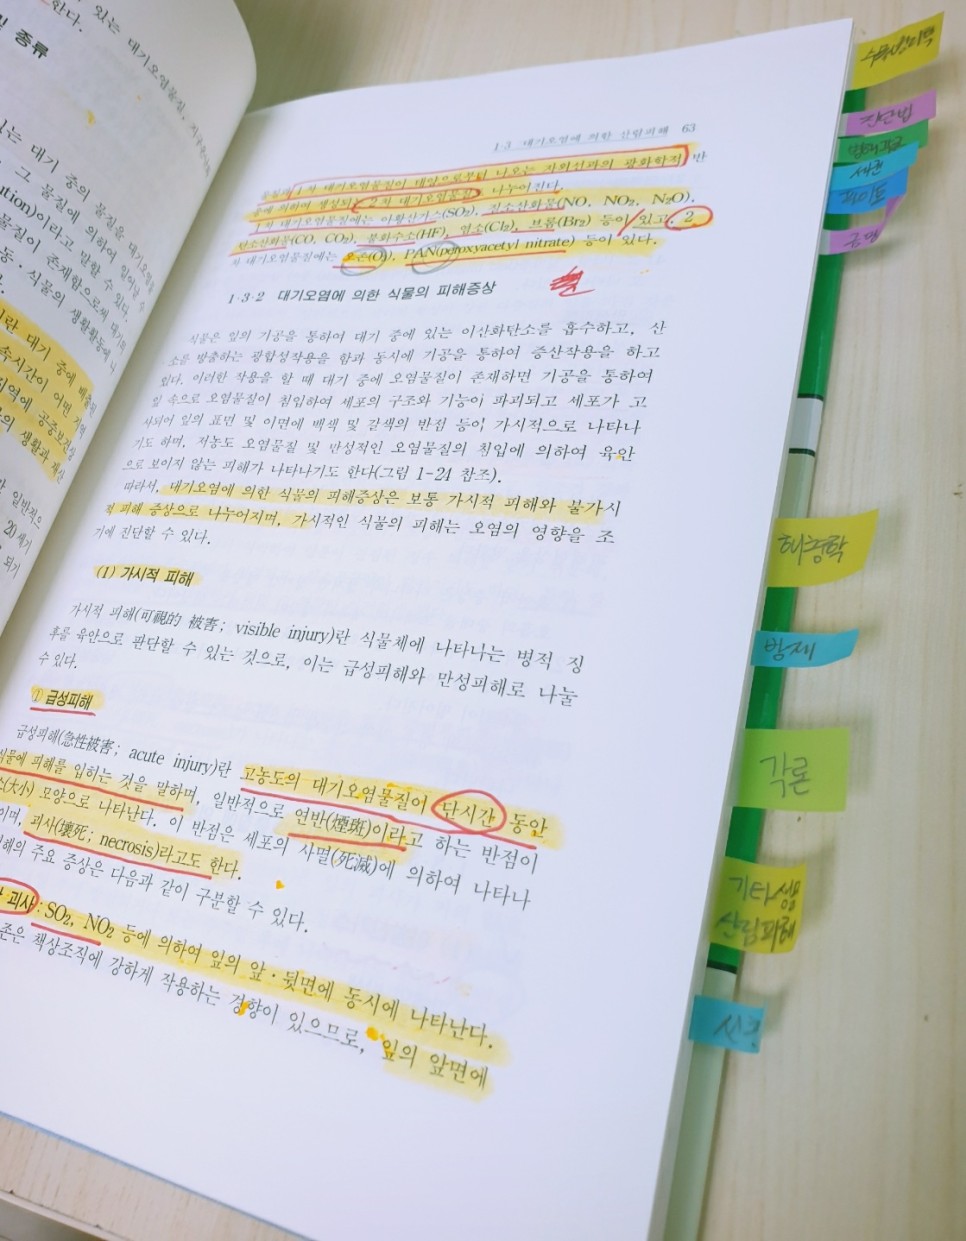 있는 대기오염물질, 지구온난화
한다.
및 종류
있는 대기 중의
그 물질에 의하여 일어날 수
ution)이라고 말할 수 있다.
물질이 존재함으로써 대기로
동·식물의 생활활동에 나
란 대기 중에 배출된
속시간이 어떤 지역
지역에 공중보건상
의 생활과 재산
일반적으
20세기
되기
1·3 대기오염에 의한 산림피해 63
1차 대기오염물질이 태양으로부터 나오는 자외선과의 광화학적 반
응에 의하여 생성되는 2차 대기오염물질로 나누어진다.
1차 대기오염물질에는 이황산가스(SO₂), 질소산화물(NO, NO₂, N₂O),
탄소산화물(CO, CO₂), 불화수소(HF), 염소(Cl₂), 브롬(Br₂) 등이 있고, 2
차 대기오염물질에는 오존(O₃), PAN(peroxyacetyl nitrate) 등이 있다.
1·3·2 대기오염에 의한 식물의 피해증상
식물은 잎의 기공을 통하여 대기 중에 있는 이산화탄소를 흡수하고, 산
소를 방출하는 광합성작용을 함과 동시에 기공을 통하여 증산작용을 하고
있다. 이러한 작용을 할 때 대기 중에 오염물질이 존재하면 기공을 통하여
잎 속으로 오염물질이 침입하여 세포의 구조와 기능이 파괴되고 세포가 고
사되어 잎의 표면 및 이면에 백색 및 갈색의 반점 등이 가시적으로 나타나
기도 하며, 저농도 오염물질 및 만성적인 오염물질의 침입에 의하여 육안
으로 보이지 않는 피해가 나타나기도 한다(그림 1-24 참조).
따라서, 대기오염에 의한 식물의 피해증상은 보통 가시적 피해와 불가시
적 피해 증상으로 나누어지며, 가시적인 식물의 피해는 오염의 영향을 조
기에 진단할 수 있다.
(1) 가시적 피해
가시적 피해(可視的 被害; visible injury)란 식물체에 나타나는 병적 징
후를 육안으로 판단할 수 있는 것으로, 이는 급성피해와 만성피해로 나눌
수 있다.
① 급성피해
급성피해(急性被害; acute injury)란 고농도의 대기오염물질이 단시간 동안
식물에 피해를 입히는 것을 말하며, 일반적으로 연반(煙斑)이라고 하는 반점이
(大小) 모양으로 나타난다. 이 반점은 세포의 사멸(死滅)에 의하여 나타나
이며, 괴사(壞死; necrosis)라고도 한다.
해의 주요 증상은 다음과 같이 구분할 수 있다.
괴사: SO₂, NO₂ 등에 의하여 잎의 앞·뒷면에 동시에 나타난다.
존은 책상조직에 강하게 작용하는 경향이 있으므로, 잎의 앞면에
수목병리학
진단법
세균
파이토
균명
해충학
방제
각론
기타생물
산림피해